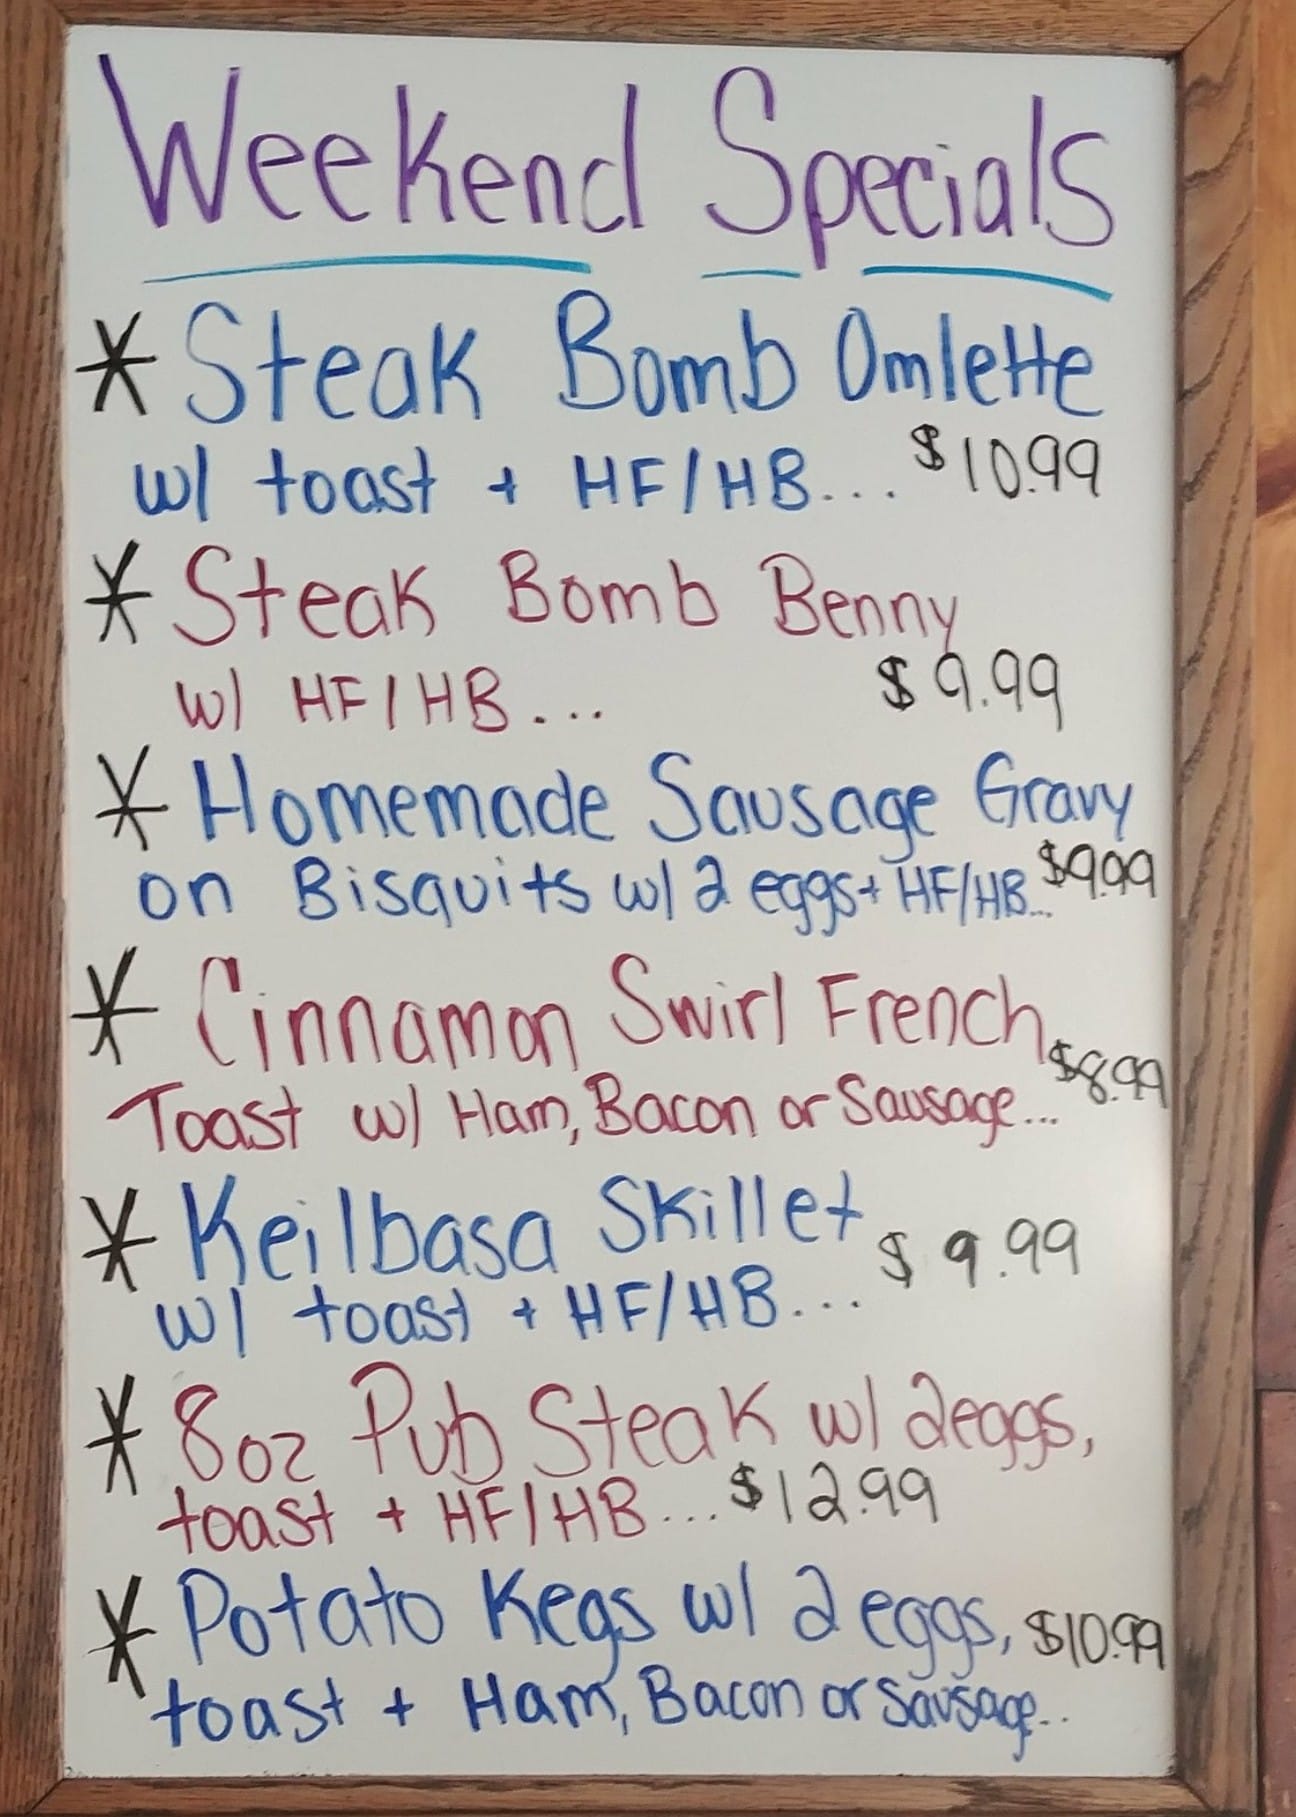 Weekend Specials
* Steak Bomb Omlette
w/ toast + HF/HB... $10.99
* Steak Bomb Benny
w/ HF/HB... $9.99
* Homemade Sausage Gravy
on Bisquits w/ 2 eggs + HF/HB... $9.99
* Cinnamon Swirl French
Toast w/ Ham, Bacon or Sausage... $8.99
* Keilbasa Skillet
w/ toast + HF/HB... $9.99
* 8oz Pub Steak w/ 2eggs,
toast + HF/HB... $12.99
* Potato Kegs w/ 2 eggs, $10.99
toast + Ham, Bacon or Sausage..